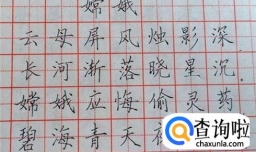 嫦娥
云母屏风烛影深
长河渐落晓星沉
嫦娥应悔偷灵药
碧海青天夜
查询啦
chaxunla.com